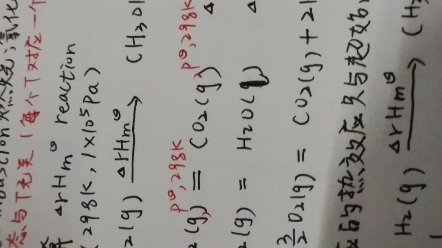 bustion 燃烧:氧化
与T无关(每个T对应一个
ΔrHm⊖ reaction
298K, 1×10⁵Pa)
₂(g) ΔrHm⊖→ (CH₃O
p⊖,298K p⊖,298K
(g) = CO₂(g) Δ
(g) = H₂O( Δ
3/2 O₂(g) = CO₂(g) + 2
的热效应只与起始
H₂(g) ΔrHm⊖→ (CH₃